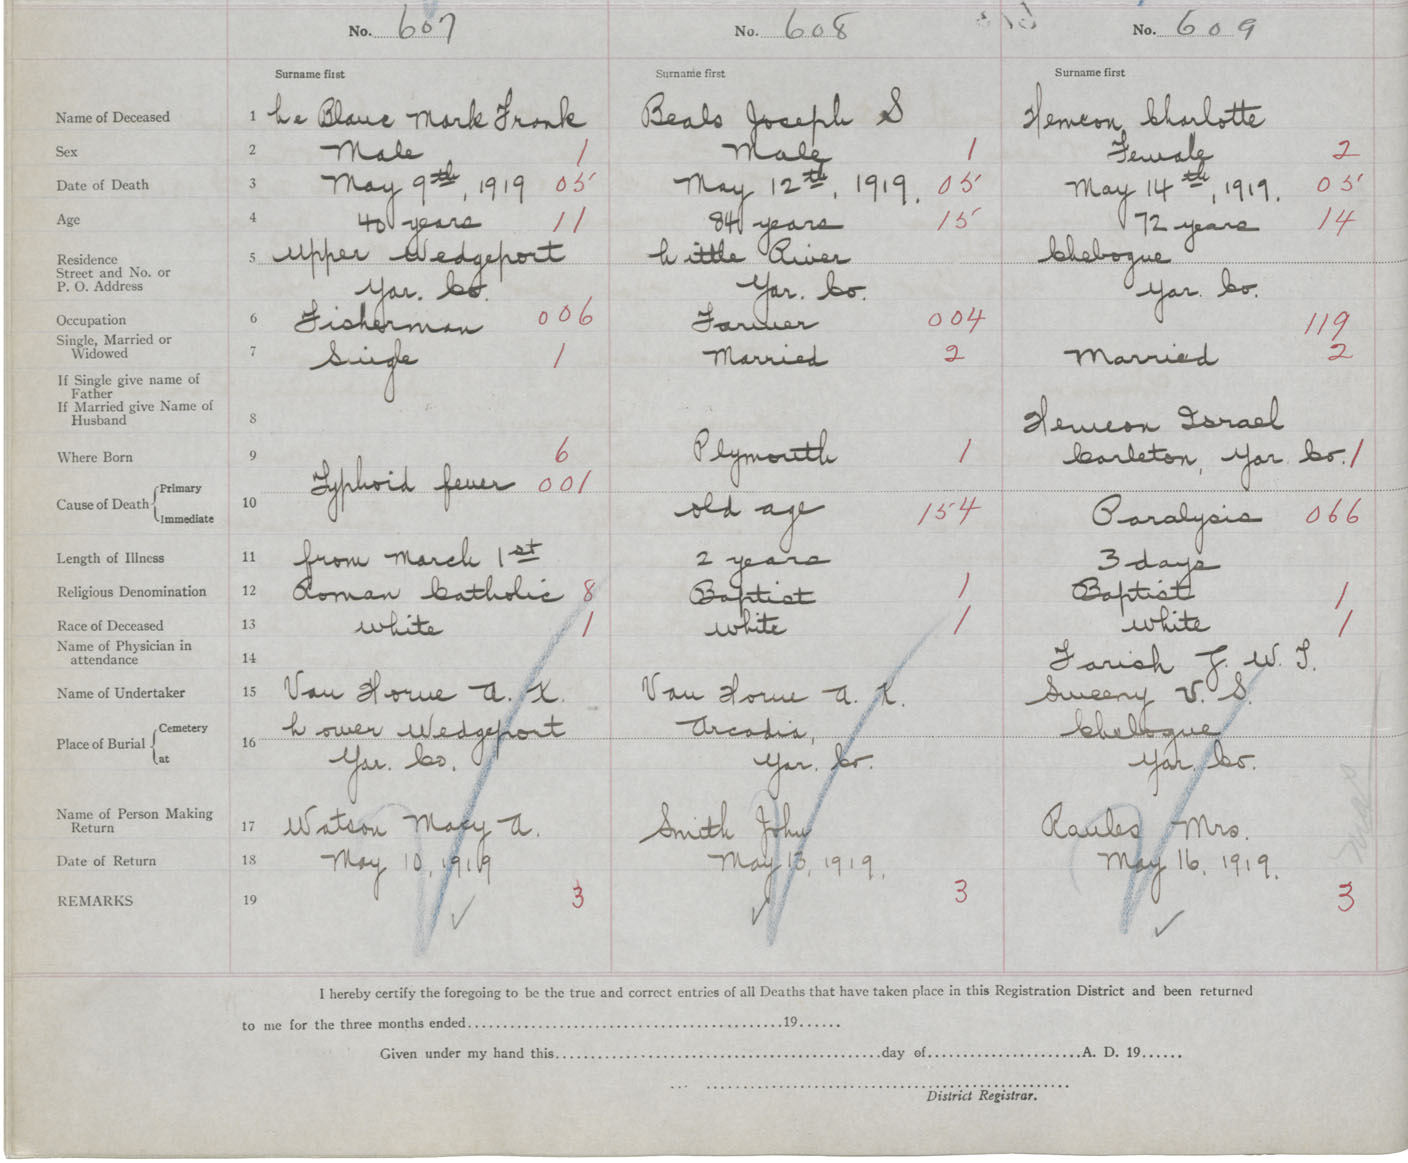 No. 607 No. 608 No. 609
Surname first Surname first Surname first
Name of Deceased 1 Le Blanc Mark Frank Beals Joseph S Hemeon Charlotte
Sex 2 Male 1 Male 1 Female 2
Date of Death 3 May 9th, 1919 05 May 12th, 1919. 05 May 14th, 1919. 05
Age 4 40 years 11 84 years 15 72 years 14
Residence 5 Upper Wedgeport Little River Chebogue
Street and No. or
P. O. Address Yar. Co. Yar. Co. Yar. Co.
Occupation 6 Fisherman 006 Farmer 004 119
Single, Married or
Widowed 7 Single 1 Married 2 Married 2
If Single give name of
Father
If Married give Name of
Husband 8 Hemeon Israel
Where Born 9 6 Plymouth 1 Carleton, Yar. Co. 1
Cause of Death Primary Typhoid fever 001
Immediate 10 old age 154 Paralysis 066
Length of Illness 11 from March 1st 2 years 3 days
Religious Denomination 12 Roman Catholic 8 Baptist 1 Baptist 1
Race of Deceased 13 white 1 white 1 white 1
Name of Physician in
attendance 14 Farish J. W. T.
Name of Undertaker 15 Van Horne A. K. Van Horne A. K. Sweeny V. S.
Place of Burial Cemetery 16 Lower Wedgeport Arcadia, Chebogue
at Yar. Co. Yar. Co. Yar. Co.
Name of Person Making
Return 17 Watson Mary A. Smith John Raules Mrs.
Date of Return 18 May 10, 1919 May 13, 1919. May 16, 1919.
REMARKS 19 3 3 3
I hereby certify the foregoing to be the true and correct entries of all Deaths that have taken place in this Registration District and been returned
to me for the three months ended 19
Given under my hand this day of A. D. 19
District Registrar.